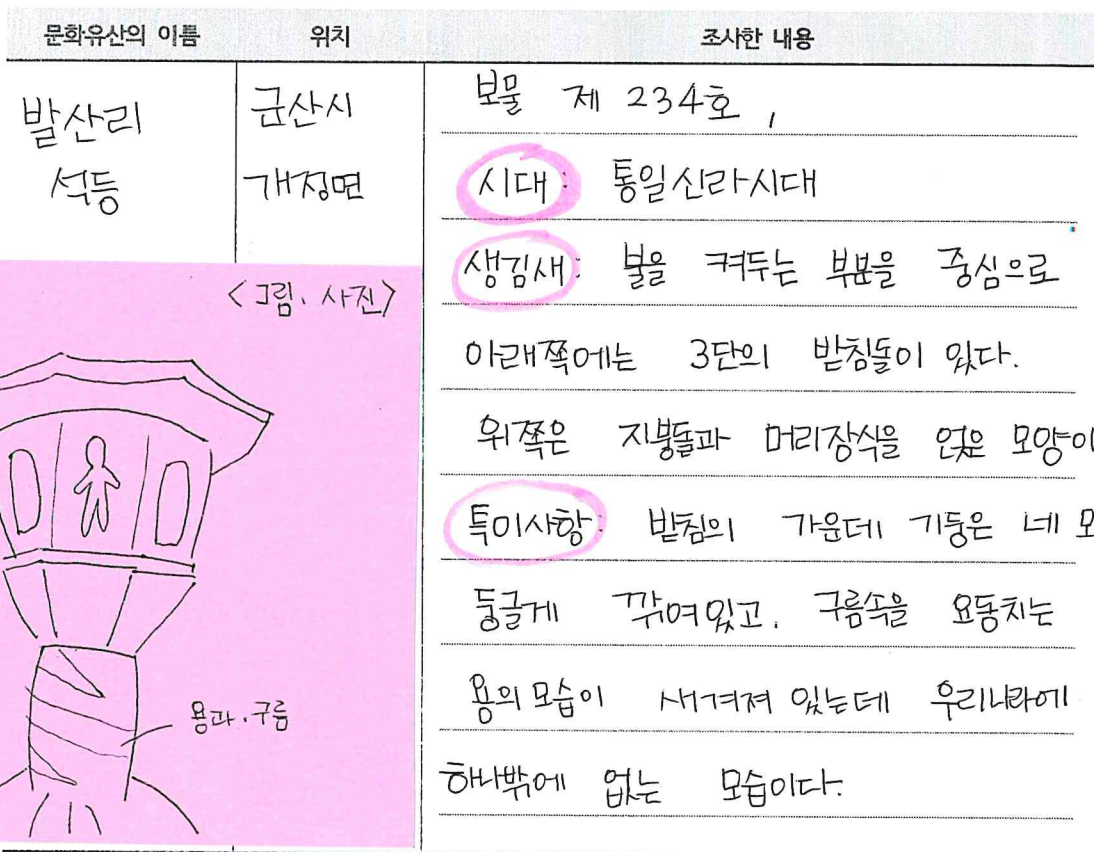 문화유산의 이름 위치 조사한 내용
발산리
석등
군산시
개정면
보물 제 234호,
시대: 통일신라시대
생김새: 불을 켜두는 부분을 중심으로
아래쪽에는 3단의 받침돌이 있다.
위쪽은 지붕돌과 머리장식을 얹은 모양이
특이사항: 받침의 가운데 기둥은 네 모
둥글게 깎여있고, 구름속을 요동치는
용의 모습이 새겨져 있는데 우리나라에
하나밖에 없는 모습이다.
<그림, 사진>
용과, 구름